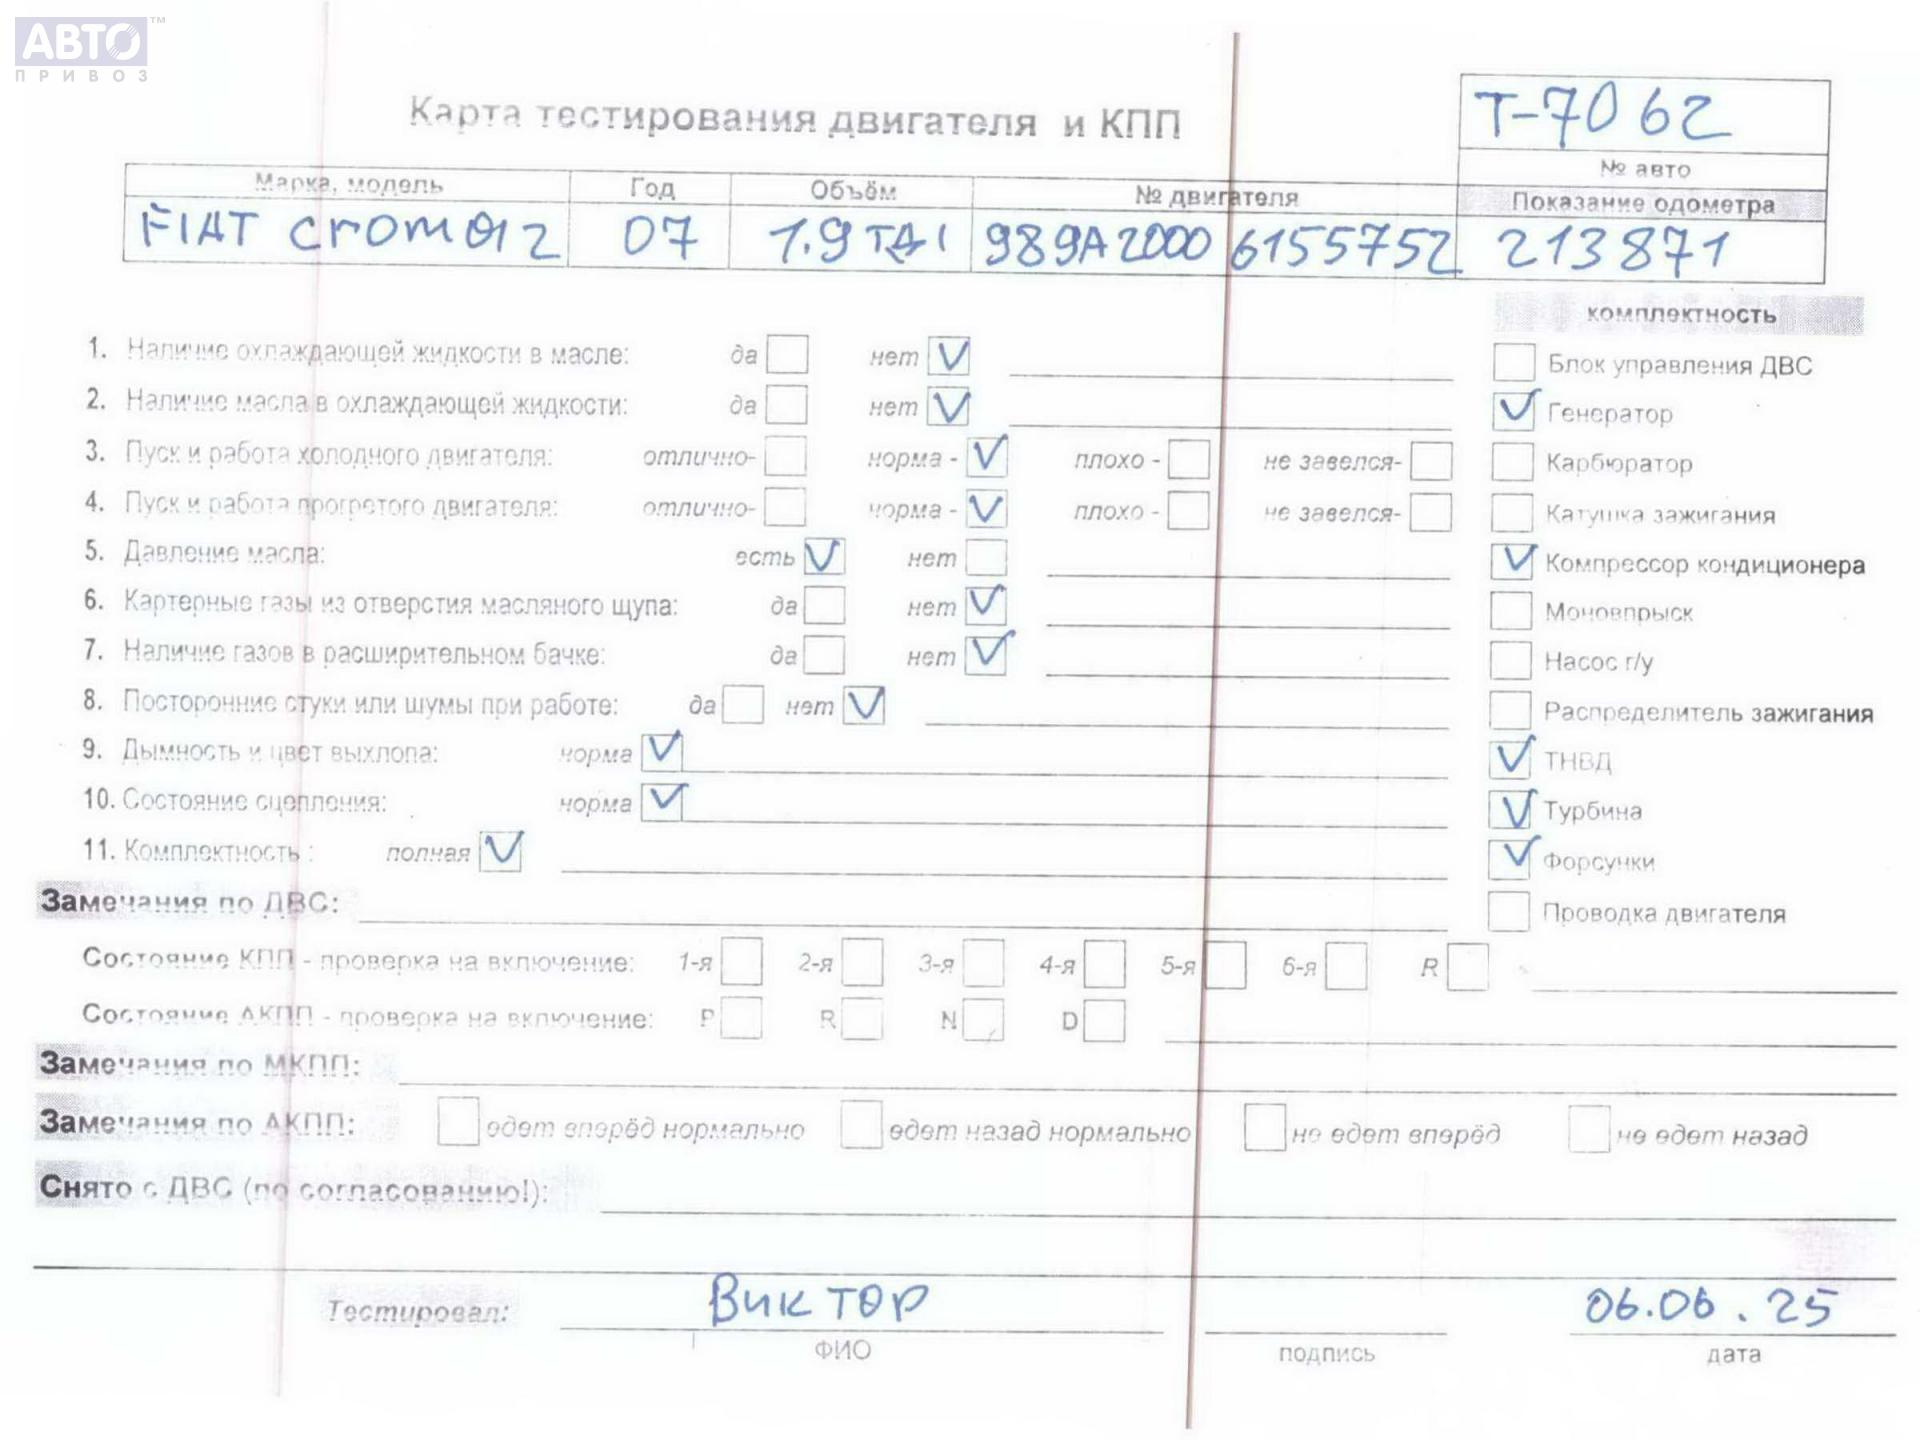 АВТО™
ПРИВОЗ
Карта тестирования двигателя и КПП
Т-7062
№ авто
Марка, модель Год Объём № двигателя Показание одометра
FIAT Croma 2 07 1.9 TDI 989A2000 6155752 213871
комплектность
1. Наличие охлаждающей жидкости в масле: да нет V
Блок управления ДВС
2. Наличие масла в охлаждающей жидкости: да нет V
V Генератор
3. Пуск и работа холодного двигателя: отлично- норма - V плохо - не завелся-
Карбюратор
4. Пуск и работа прогретого двигателя: отлично- норма - V плохо - не завелся-
Катушка зажигания
5. Давление масла: есть V нет
V Компрессор кондиционера
6. Картерные газы из отверстия масляного щупа: да нет V
Моновпрыск
7. Наличие газов в расширительном бачке: да нет V
Насос г/у
8. Посторонние стуки или шумы при работе: да нет V
Распределитель зажигания
9. Дымность и цвет выхлопа: норма V
V ТНВД
10. Состояние сцепления: норма V
V Турбина
11. Комплектность : полная V
V Форсунки
Замечания по ДВС:
Проводка двигателя
Состояние КПП - проверка на включение: 1-я 2-я 3-я 4-я 5-я 6-я R
Состояние АКПП - проверка на включение: P R N D
Замечания по МКПП:
Замечания по АКПП: едет вперёд нормально едет назад нормально не едет вперёд не едет назад
Снято с ДВС (по согласованию!):
Тестировал: Виктор 06.06.25
ФИО подпись дата